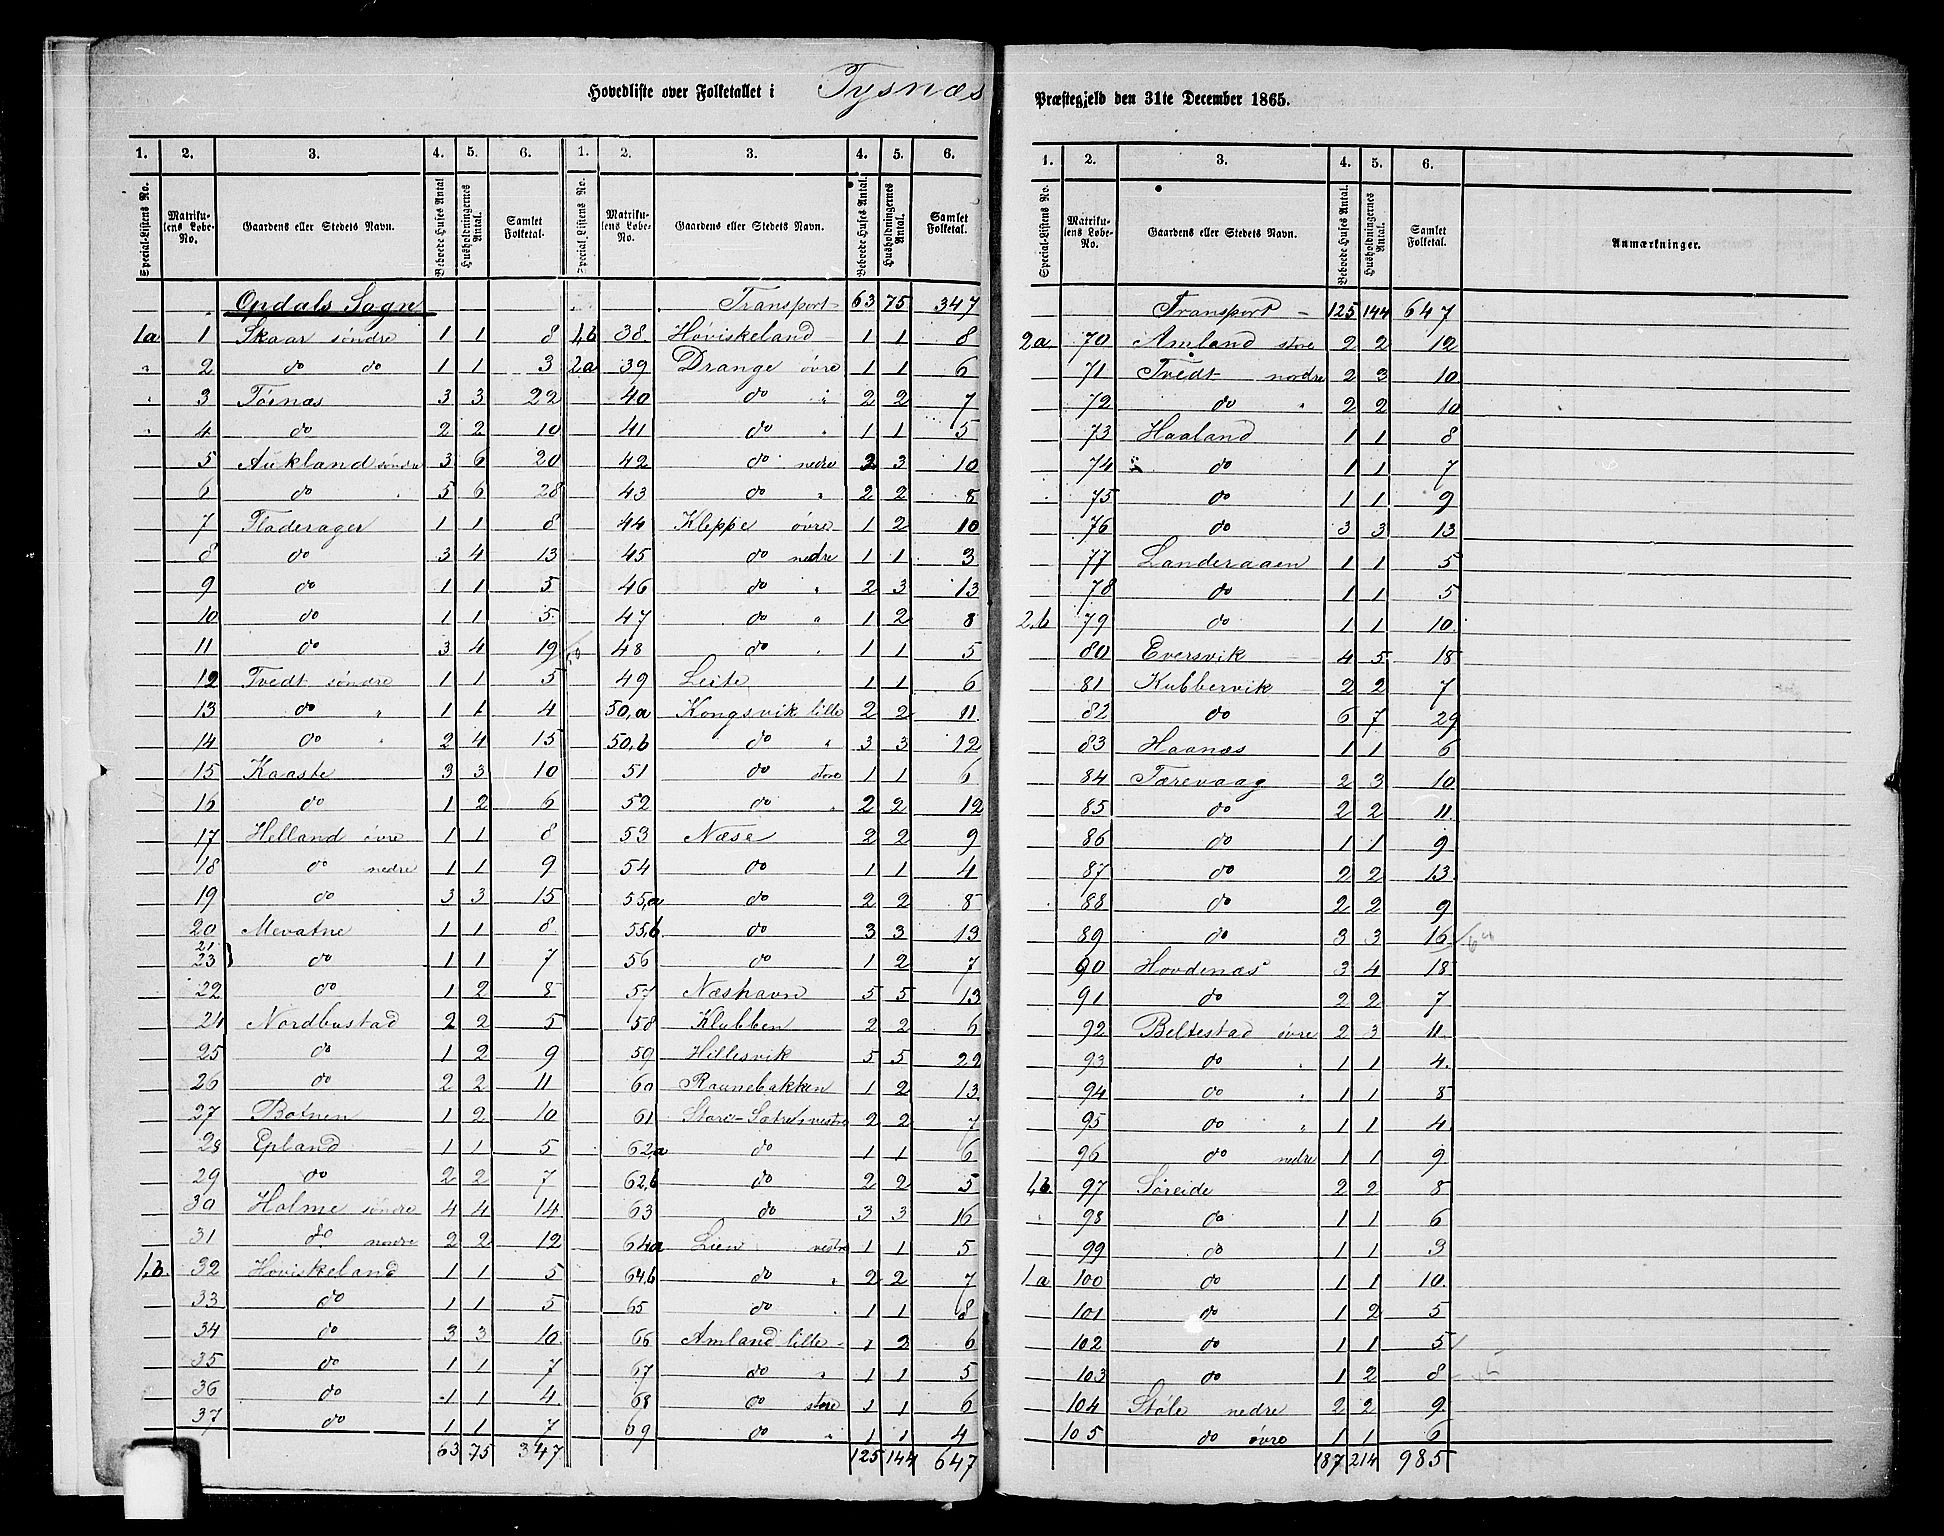 Hovedliste over Folketallet i Tysnæs
1. 2. 3. 4. 5. 6. 1. 2. 3. 4. 5. 6.
Special-Listens No. Matrikulens Løbe-No. Gaardens eller Stedets Navn. Beboede Huses Antal Husholdningernes Antal. Samlet Folketal. Special-Listens No. Matrikulens Løbe-No. Gaardens eller Stedets Navn. Beboede Huses Antal. Husholdningernes Antal. Samlet Folketal.
Opdals Sogn
1a 1 Skaar søndre 1 1 8
" 2 do do 1 1 3
" 3 Töenæs 3 3 22
" 4 do 2 2 10
5 Aukland søndre 3 6 20
6 do " 5 6 28
7 Fladerager 1 1 8
8 do 3 4 13
9 do 1 1 5
10 do 1 1 5
11 do 3 4 19
12 Tvedt søndre 1 1 5
13 do " 1 1 4
14 do " 2 4 15
15 Kaaste 3 3 10
16 do 1 2 6
17 Helland øvre 1 1 8
18 do nedre 1 1 9
19 do 3 3 15
20 Mevatne 1 1 8
21
23 } do 1 1 7
22 do 1 2 8
24 Nordbustad 2 2 5
25 do 1 2 9
26 do 2 2 11
27 Botnen 1 2 10
28 Epland 1 1 5
29 do 2 2 7
30 Holme søndre 4 4 14
31 do nordre 2 2 12
1,b. 32 Høviskeland 1 1 5
33 do 1 1 5
34 do 3 3 10
35 do 1 1 7
36 do 1 1 4
37 do 1 1 7
63 75 347
Transport 63 75 347
1,b 38 Høviskeland 1 1 8
2a 39 Drange øvre 1 1 6
40 do " 2 2 7
41 do " 1 1 5
42 do nedre 2 3 10
43 do " 2 2 8
44 Kleppe øvre 1 2 10
45 do nedre 1 1 3
46 do " 2 3 13
47 do " 1 2 8
48 do " 1 1 5
49 Leite 1 1 6
50,a Kongsvik lille 2 2 11
50,b do " 3 3 12
51 do store 1 1 6
52 do " 2 2 12
53 Næse 2 2 9
54 do 1 1 4
55,a do 2 2 8
55,b do 3 3 13
56 do 1 2 7
57 Næshavn 5 5 13
58 Klubben 2 2 6
59 Hillesvik 5 5 22
60 Raunebakken 1 2 13
61 Store-Sætre vestre 2 2 7
62a do 1 1 6
62,b do 2 2 5
63 do 3 3 16
64a Lien vestre 1 1 5
64,b do " 2 2 7
65 do 1 1 8
66 Amland lille 1 2 6
67 do " 1 1 5
68 do store 1 1 6
69 do " 1 1 4
125 144 647
Præstegjeld den 31te December 1865.
1. 2. 3. 4. 5. 6.
Special-Listens No. Matrikulens Løbe-No. Gaardens eller Stedets Navn. Beboede Huses Antal. Husholdningernes Antal. Samlet Folketal. Anmærkninger.
Transport 125 144 647
2a. 70 Amland store 2 2 12
71 Tvedt nordre 2 3 10
72 do " 2 2 10
73 Haaland 1 1 8
74 do 1 1 7
75 do 1 1 9
76 do 3 3 13
77 Landeraaen 1 1 5
78 do 1 1 5
2,b 79 do 1 1 10
80 Eversvik 4 5 18
81 Kubbervik 2 2 7
82 do 6 7 29
83 Haanæs 1 1 6
84 Tærevaag 2 3 10
85 do 2 2 11
86 do 1 1 9
87 do 2 2 13
88 do 2 2 9
89 do 3 3 16
90 Hovdenæs 3 4 18
91 do 2 2 7
92 Beltestad øvre 2 3 11
93 do " 1 1 4
94 do " 1 1 8
95 do " 1 1 4
96 do nedre 1 1 9
1,b. 97 Søreide 2 2 8
98 do 1 1 6
99 do 1 1 3
1a 100 do 1 1 10
101 do 1 2 5
102 do 1 1 5
103 do 1 2 8
104 Støle nedre 2 2 9
105 do øvre 1 1 6
187 214 985